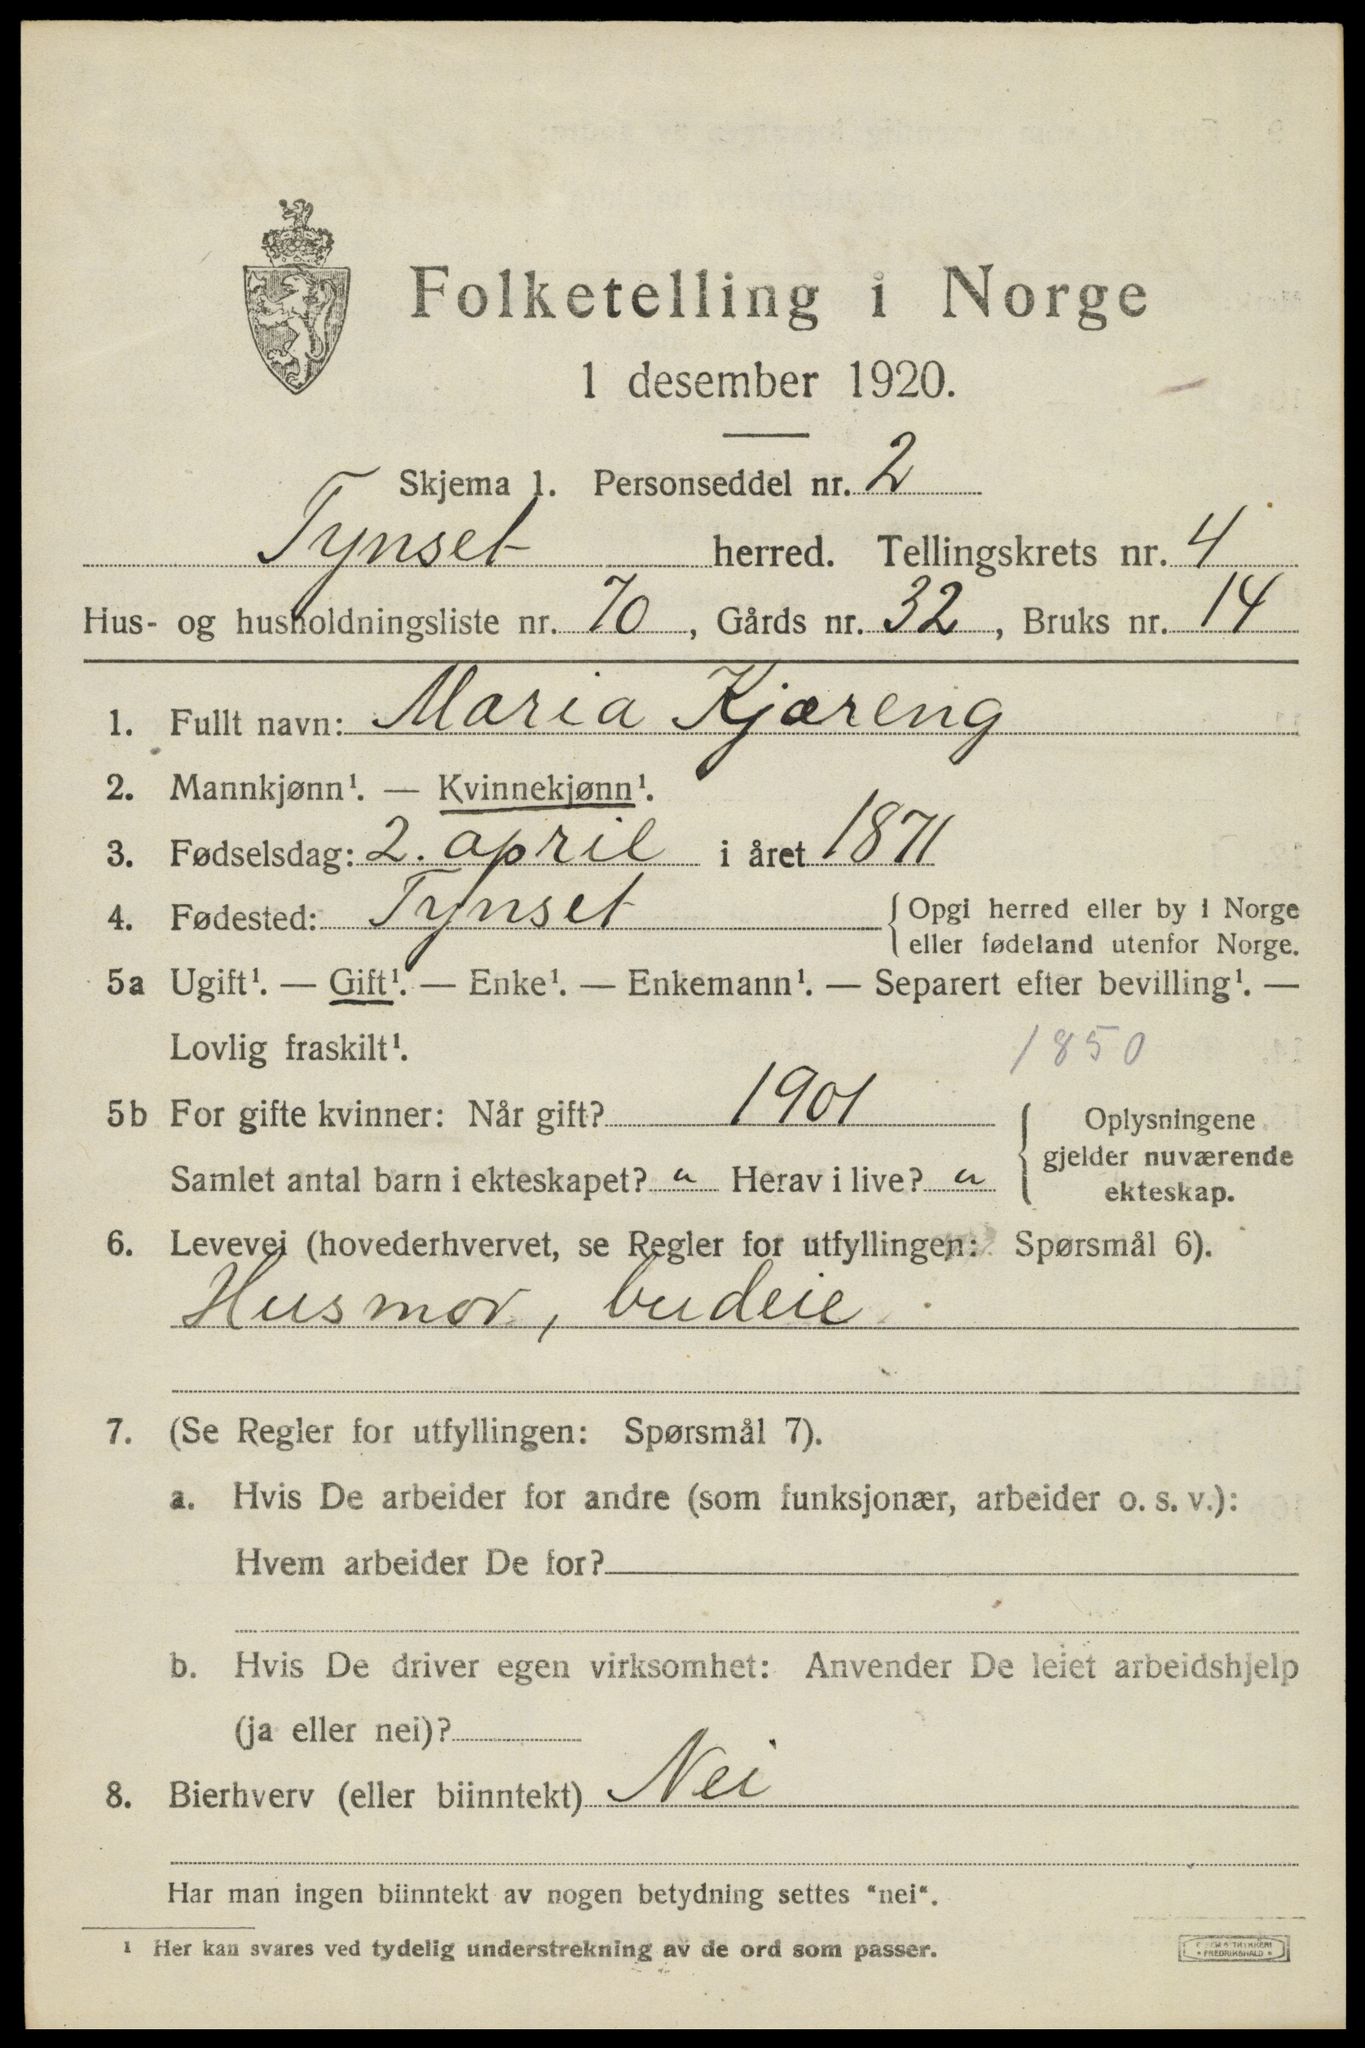 Folketelling i Norge
1 desember 1920.
Skjema 1. Personseddel nr. 2
Tynset herred. Tellingskrets nr. 4
Hus- og husholdningsliste nr. 70, Gårds nr. 32, Bruks nr. 14
1. Fullt navn: Maria Kjæreng
2. Mannkjønn¹. — Kvinnekjønn¹.
3. Fødselsdag: 2. april i året 1871
4. Fødested: Tynset {Opgi herred eller by i Norge
eller fødeland utenfor Norge.
5a Ugift¹. — Gift¹. — Enke¹. — Enkemann¹. — Separert efter bevilling¹. —
Lovlig fraskilt¹. 1850
5b For gifte kvinner: Når gift? 1901 { Oplysningene
gjelder nuværende
ekteskap.
Samlet antal barn i ekteskapet? " Herav i live? "
6. Levevei (hovederhvervet, se Regler for utfyllingen: Spørsmål 6).
Husmor, budeie
7. (Se Regler for utfyllingen: Spørsmål 7).
a. Hvis De arbeider for andre (som funksjonær, arbeider o. s. v.):
Hvem arbeider De for?
b. Hvis De driver egen virksomhet: Anvender De leiet arbeidshjelp
(ja eller nei)?
8. Bierhverv (eller biinntekt) Nei
Har man ingen biinntekt av nogen betydning settes "nei".
¹ Her kan svares ved tydelig understrekning av de ord som passer.
FREDRIKSHALD